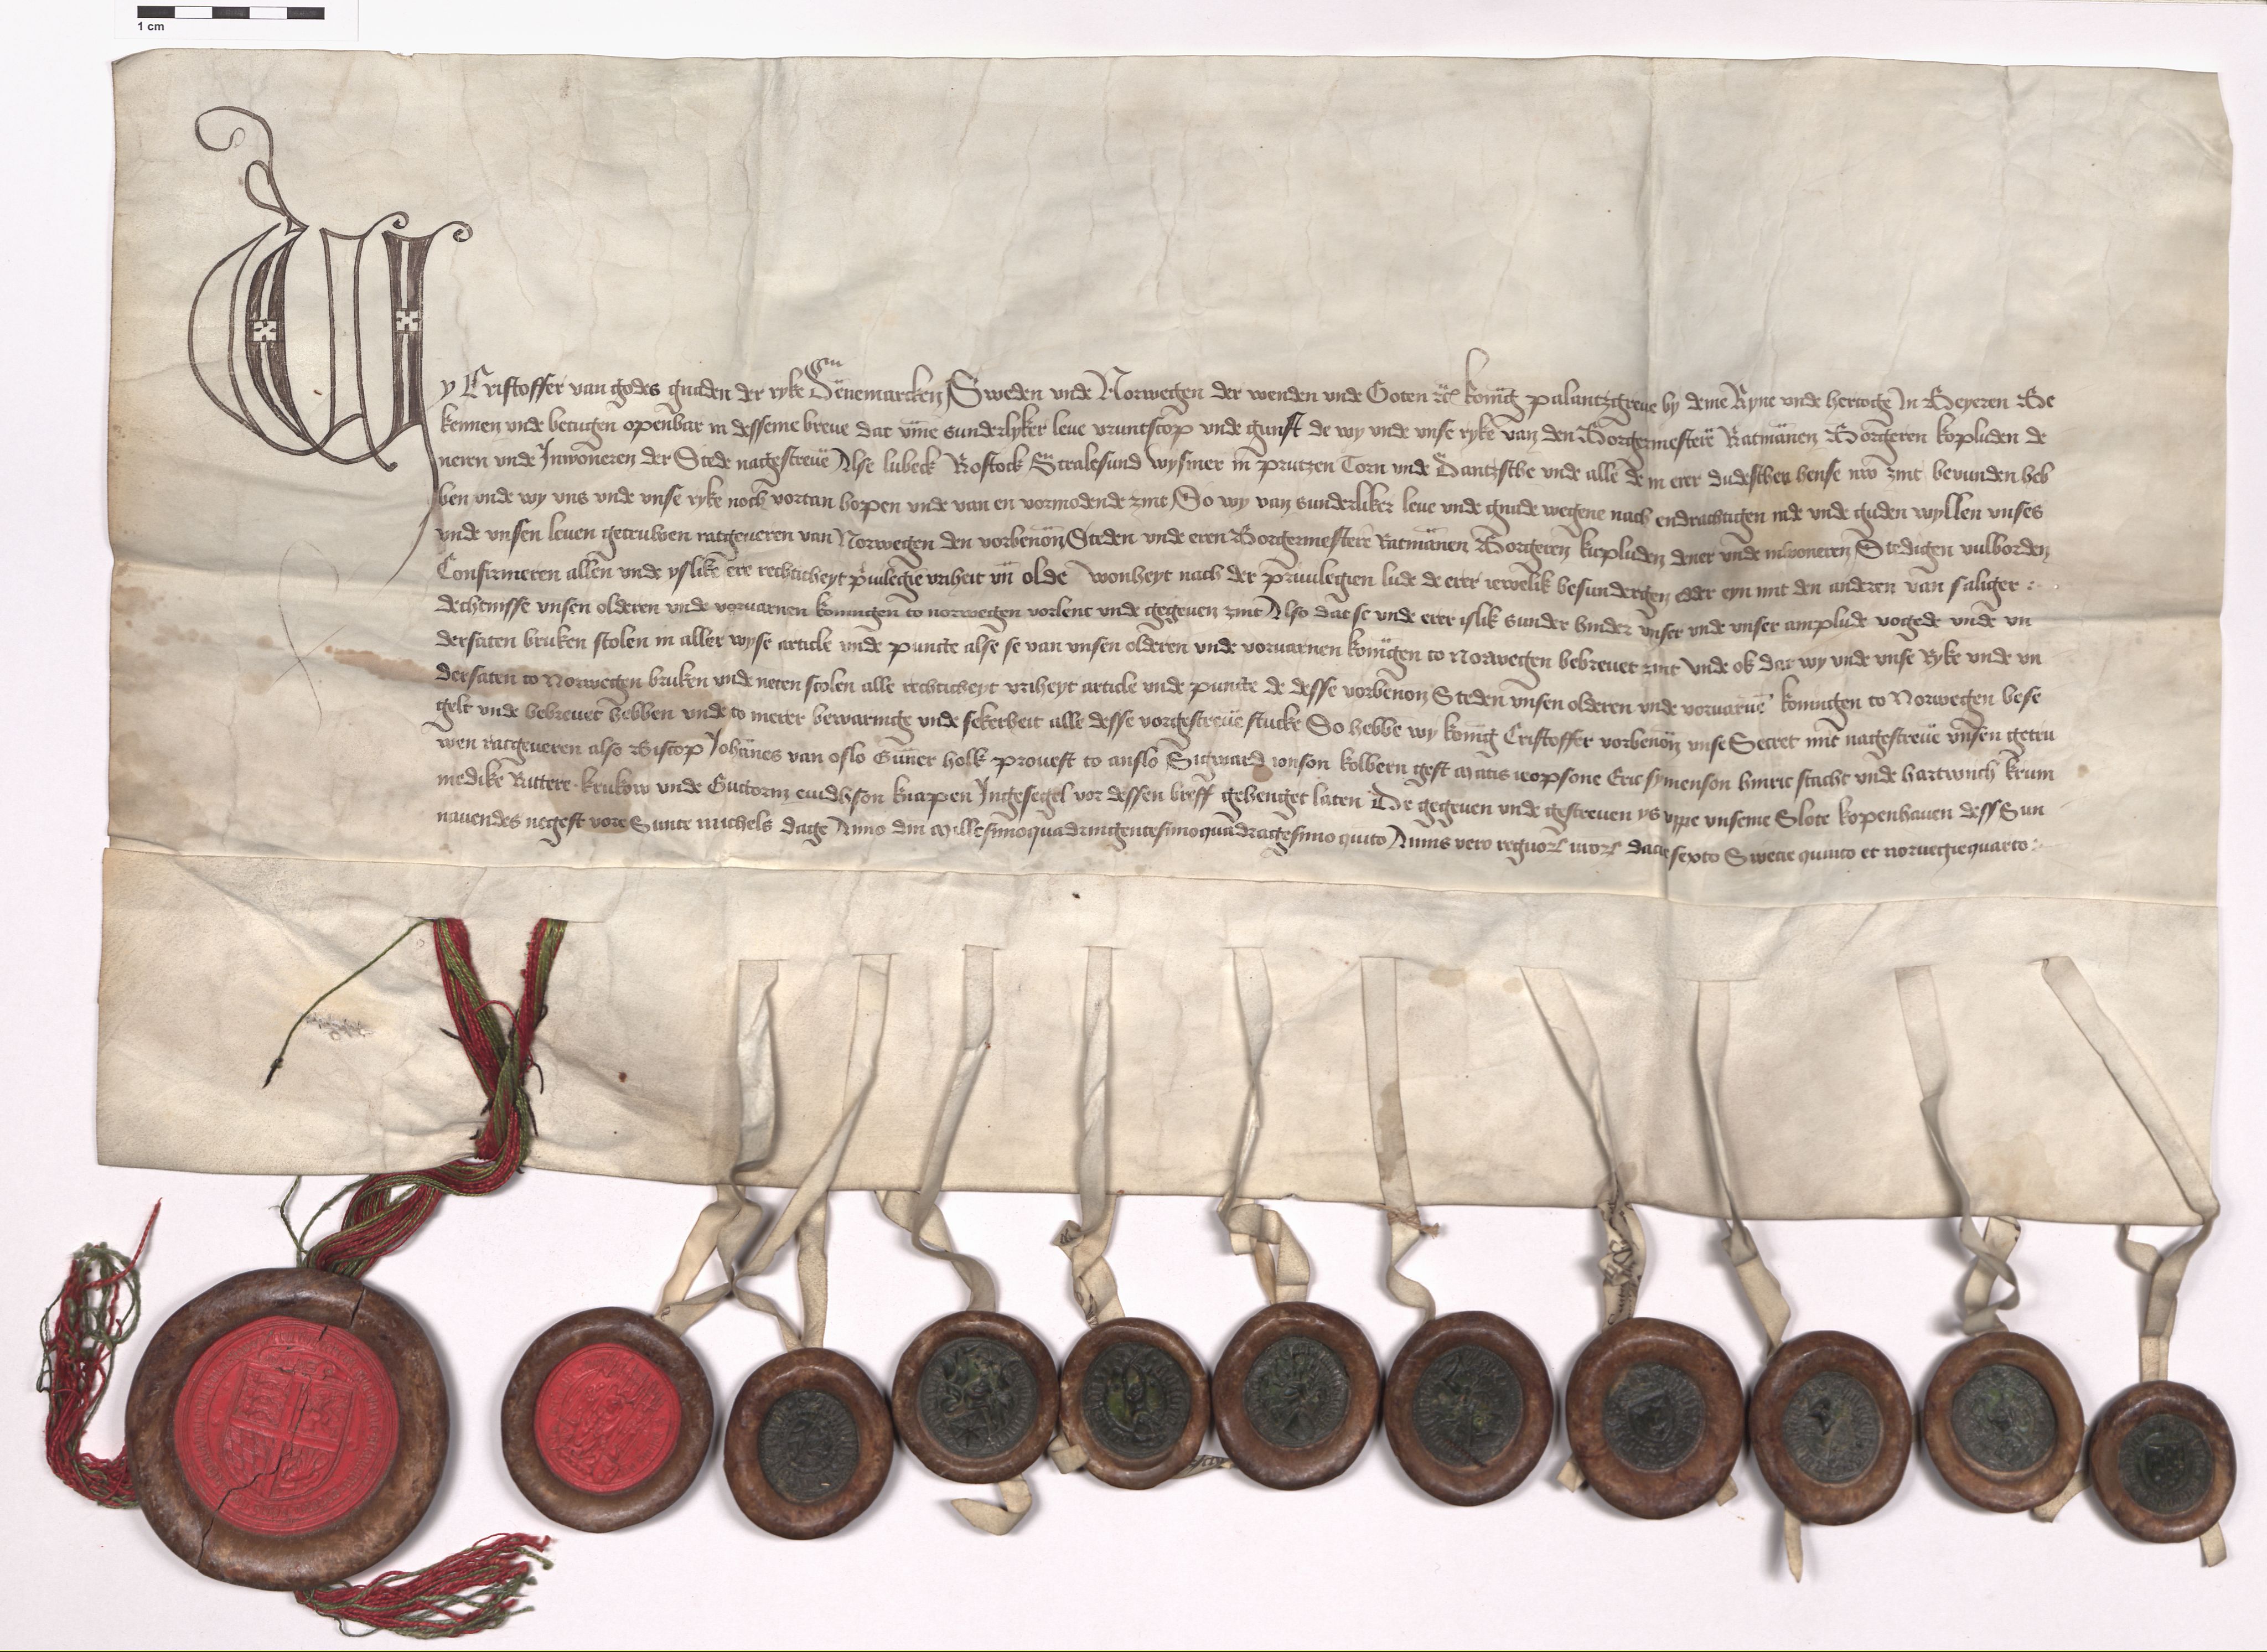 1 cm
Wy Cristoffer van godes gnaden der ryke Dēnemarcken Sweden vnde Norwegen der wenden vnde Goten rc̄ konīg palantzgreue by deme Ryne vnde hertoge In Beyeren Be
kennen vnde betugen openbar in desseme breue dat vm̄e sunderlyker leue vruntscop vnde gunst de wy vnde vnse ryke van den Borgermesterē Ratmānen Borgeren kopluden de
neren vnde Inwoneren der Stede nagescreuē Alse lubeck Rostock Stralesund wysmer in prutzen Torn vnde Dantzsche vnde alle de in erer dudeschen hense nw zint bevunden heb
ben vnde wy vns vnde vnse ryke noch vortan hopen vnde van en vormodende zint So wy van sunderliker leue vnde gnade wegene nach endrachtigen rade vnde guden wyllen vnses
vnde vnsen leuen getruwen ratgeueren van Norwegen den vorbenōn Steden vnde eren Borgermestere Ratmānen Borgeren kopluden dener vnde inwoneren Stedigen vulborden
Confirmeren allen vnde yslikē ere rechticheyt priuilegie vriheit vn̄ olde wonheyt nach der priuilegien lude de erer iewelik besundergen edder eyn mit den anderen van saliger
dechtnisse vnsen olderen vnde voruarnen konningen to norwegen vorlent vnde gegeuen zint Also dat se vnde erer islik sunder hinder vnser vnde vnser amplude vogede vnde vn
dersaten bruken scolen in aller wyse article vnde puncte alse se van vnsen olderen vnde voruarnen konīgen to Norwegen bebreuet zint vnde ok dat wy vnde vnse Ryke vnde vn
dersaten to Norwegen bruken vnde neten scolen alle rechticheyt vriheyt article vnde puncte de desse vorbenon Steden vnsen olderen vnde voruarnē konningen to Norwegen bese
gelt vnde bebreuet hebben vnde to merer bewaringe vnde sekerheit alle desse vorgescreuē stucke So hebbe wy konīg Cristoffer vorbenōn vnse Secret mit nagescreuē vnsen getru
wen ratgeueren also Biscop Johānes van oslo Gūner holk prouest to anslo Sigward ionson kolbern gest Matis ieopsone Eric symenson hinric stacht vnde hartwich krum
medike Rittere krukow vnde Guttorm endhson knapen Ingesegel vor dessen breff gehenget laten De gegeuen vnde gescreuen ys vppe vnseme Slote kopenhauen dess Sun
nauendes negest vore Sunte michels dage Anno dm̄ Millesimoquadringentesimoquadragesimo quīto Annis vero regnor̄ nror̄ dacie sexto Swecie quinto et noruegie quarto